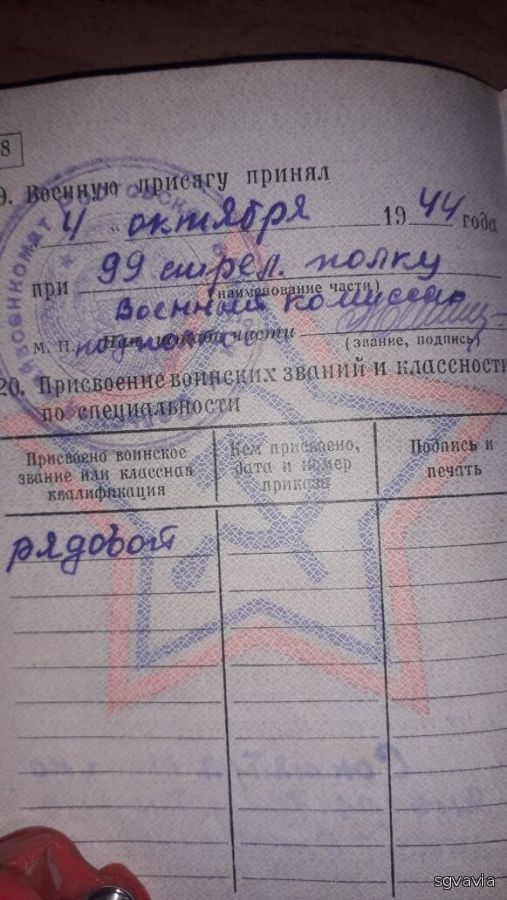 8
9. Военную присягу принял
4 " октября 1944 года
при 99 стрел. полку
(наименование части)
Военный комиссар
М. П. Нач. штаба части
(звание, подпись)
20. Присвоение воинских званий и классности
по специальности
Присвоено воинское
звание или классная
квалификация
Кем присвоено,
дата и номер
приказа
Подпись и
печать
рядовой
sgvavia